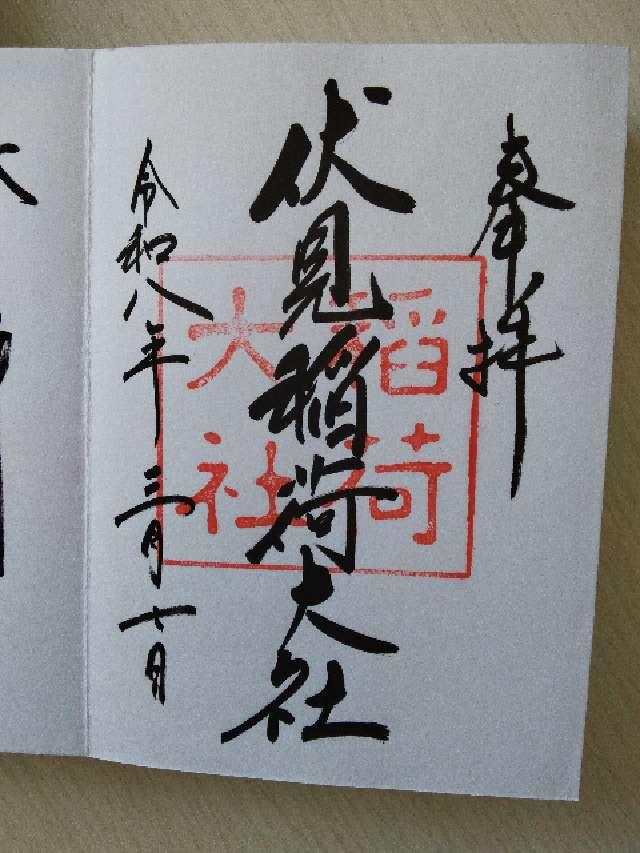 奉拝
伏見稲荷大社
稲荷
大社
令和八年三月七日